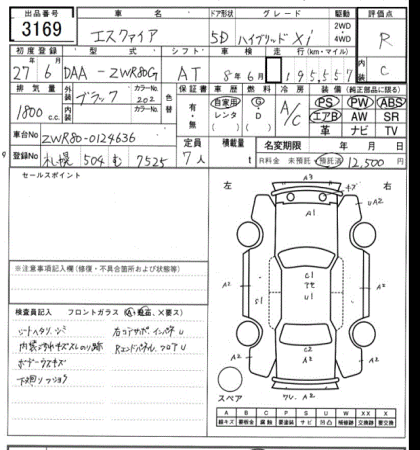 出品番号 車名 ドア形状 グレード 駆動 評価点
3169 エスクァイア 5D ハイブリッド Xi 2WD 4WD R
初度登録 型式 シフト 車検 走行(km・マイル) 内装
27年6月 DAA-ZWR80G AT 8年6月 195,557 C
排気量 外装 カラーNo. 色替 保証書 車歴 燃料 冷房 装備 (純正部品に限る)
1800 c.c. ブラック 202 有・無 自家用 レンタ G D A/C PS PW ABS
内装 カラーNo. エアB AW SR
革 ナビ TV
車台No ZWR80-0124636 定員 積載量 名変期限 年 月 日
登録No 札幌 504 む 7525 7人 t R料金 未預託・預託済 12,500円
セールスポイント
左 右
※注意事項記入欄(修復・不具合箇所および状態等)
検査員記入 フロントガラス
シートヘタリ、シミ 右コアサポ インパネ U
内装こすれキズ
ボデー小スキズ Rエンドパネル、フロア U
A3
A1
UA2
A2
A2
C1
U1
S1
A2
A2
A2
C2
A2
A2
スペア
A B C P S U W X XX
線キズ 要板金 腐触 要塗装 サビ 凹凸 補修跡 要交換 交換済